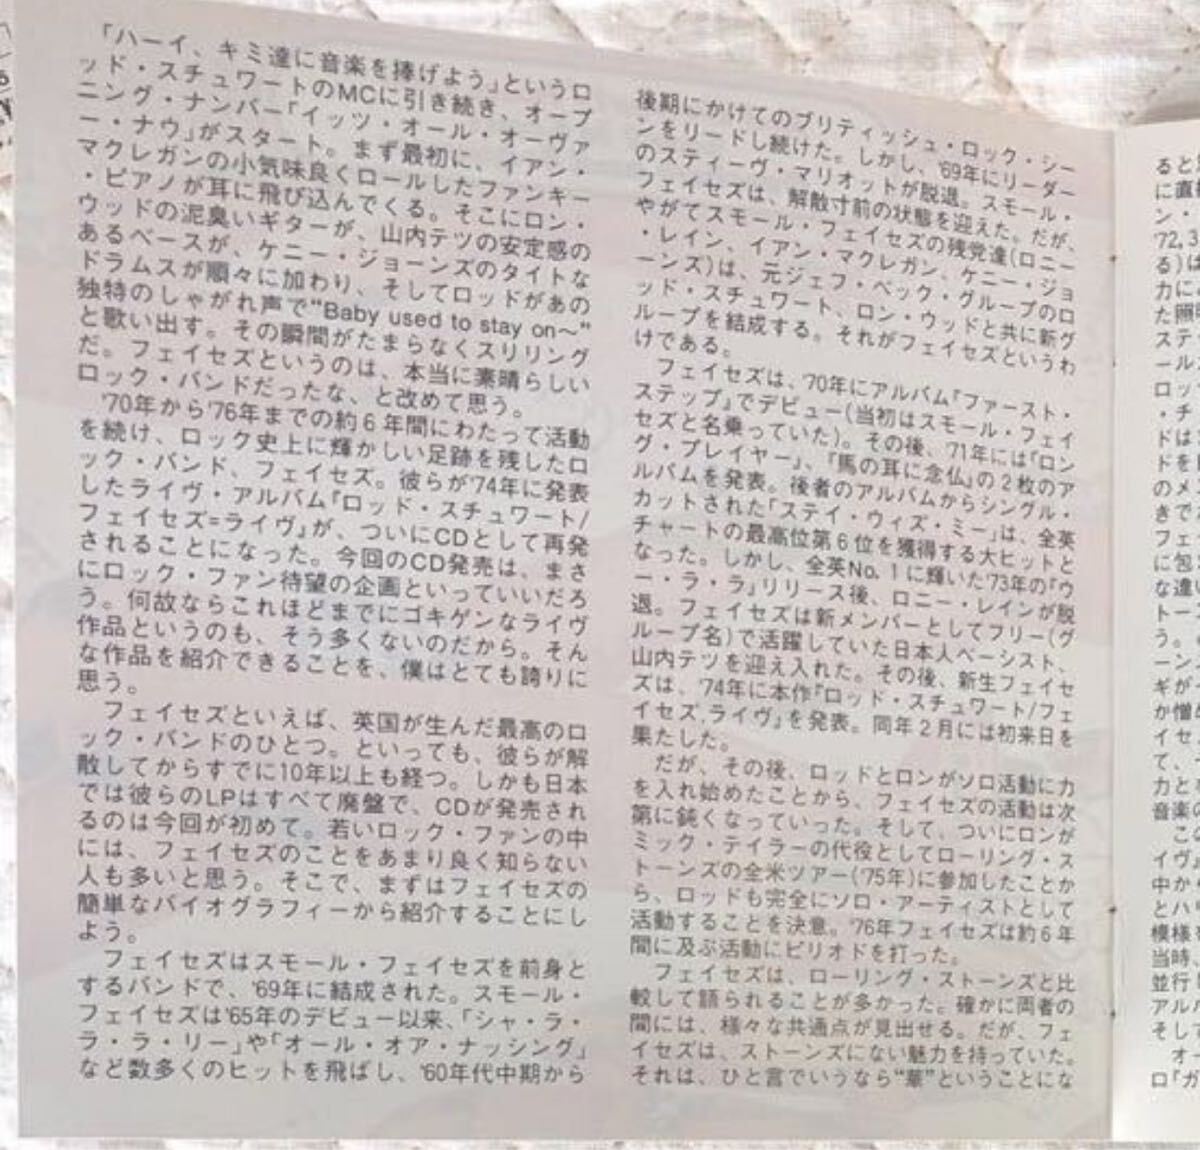 「ハーイ、キミ達に音楽を捧げよう」というロ
ッド・スチュワートのMCに引き続き、オープ
ニング・ナンバー「イッツ・オール・オーヴァ
ー・ナウ」がスタート。まず最初に、イアン・
マクレガンの小気味良くロールしたファンキー
・ピアノが耳に飛び込んでくる。そこにロン・
ウッドの泥臭いギターが、山内テツの安定感の
あるベースが、ケニー・ジョーンズのタイトな
ドラムスが順々に加わり、そしてロッドがあの
独特のしゃがれ声で"Baby used to stay on〜"
と歌い出す。その瞬間がたまらなくスリリング
だ。フェイセズというのは、本当に素晴らしい
ロック・バンドだったな、と改めて思う。
'70年から'76年までの約6年間にわたって活動
を続け、ロック史上に輝かしい足跡を残したロ
ック・バンド、フェイセズ。彼らが'74年に発表
したライヴ・アルバム『ロッド・スチュワート/
フェイセズ=ライヴ』が、ついにCDとして再発
されることになった。今回のCD発売は、まさ
にロック・ファン待望の企画といっていいだろ
う。何故ならこれほどまでにゴキゲンなライヴ
作品というのも、そう多くないのだから。そん
な作品を紹介できることを、僕はとても誇りに
思う。
フェイセズといえば、英国が生んだ最高のロ
ック・バンドのひとつ。といっても、彼らが解
散してからすでに10年以上も経つ。しかも日本
では彼らのLPはすべて廃盤で、CDが発売され
るのは今回が初めて。若いロック・ファンの中
には、フェイセズのことをあまり良く知らない
人も多いと思う。そこで、まずはフェイセズの
簡単なバイオグラフィーから紹介することにし
よう。
フェイセズはスモール・フェイセズを前身と
するバンドで、'69年に結成された。スモール・
フェイセズは'65年のデビュー以来、「シャ・ラ・
ラ・ラ・リー」や「オール・オア・ナッシング」
など数多くのヒットを飛ばし、'60年代中期から
後期にかけてのブリティッシュ・ロック・シー
ンをリードし続けた。しかし、'69年にリーダー
のスティーヴ・マリオットが脱退。スモール・
フェイセズは、解散寸前の状態を迎えた。だが、
やがてスモール・フェイセズの残党達(ロニー
・レイン、イアン・マクレガン、ケニー・ジョ
ーンズ)は、元ジェフ・ベック・グループのロ
ッド・スチュワート、ロン・ウッドと共に新グ
ループを結成する。それがフェイセズというわ
けである。
フェイセズは、'70年にアルバム『ファースト・
ステップ』でデビュー(当初はスモール・フェイ
セズと名乗っていた)。その後、'71年には『ロン
グ・プレイヤー』、『馬の耳に念仏』の2枚のア
ルバムを発表。後者のアルバムからシングル・
カットされた「ステイ・ウィズ・ミー」は、全英
チャートの最高位第6位を獲得する大ヒットと
なった。しかし、全英No.1に輝いた'73年の『ウ
ー・ラ・ラ』リリース後、ロニー・レインが脱
退。フェイセズは新メンバーとしてフリー(グ
ループ名)で活躍していた日本人ベーシスト、
山内テツを迎え入れた。その後、新生フェイセ
ズは、'74年に本作『ロッド・スチュワート/フェ
イセズ,ライヴ』を発表。同年2月には初来日を
果たした。
だが、その後、ロッドとロンがソロ活動に力
を入れ始めたことから、フェイセズの活動は次
第に鈍くなっていった。そして、ついにロンが
ミック・テイラーの代役としてローリング・ス
トーンズの全米ツアー('75年)に参加したことか
ら、ロッドも完全にソロ・アーティストとして
活動することを決意。'76年フェイセズは約6年
間に及ぶ活動にピリオドを打った。
フェイセズは、ローリング・ストーンズと比
較して語られることが多かった。確かに両者の
間には、様々な共通点が見出せる。だが、フェ
イセズは、ストーンズにない魅力を持っていた。
それは、ひと言でいうなら"華"ということにな
ると
に直
ン・
'72,3
る)は
力に
た照
ステ
ール
ロッ
・チ
ドは
ドを
のメ
きで
フェ
に包
な違
トー
う。
ーン
ギが
か憎
イセ
て、
力と
音楽
こ
イヴ
中か
とハ
模様
当時、
並行
アル
そし
オ
ロ「ガ